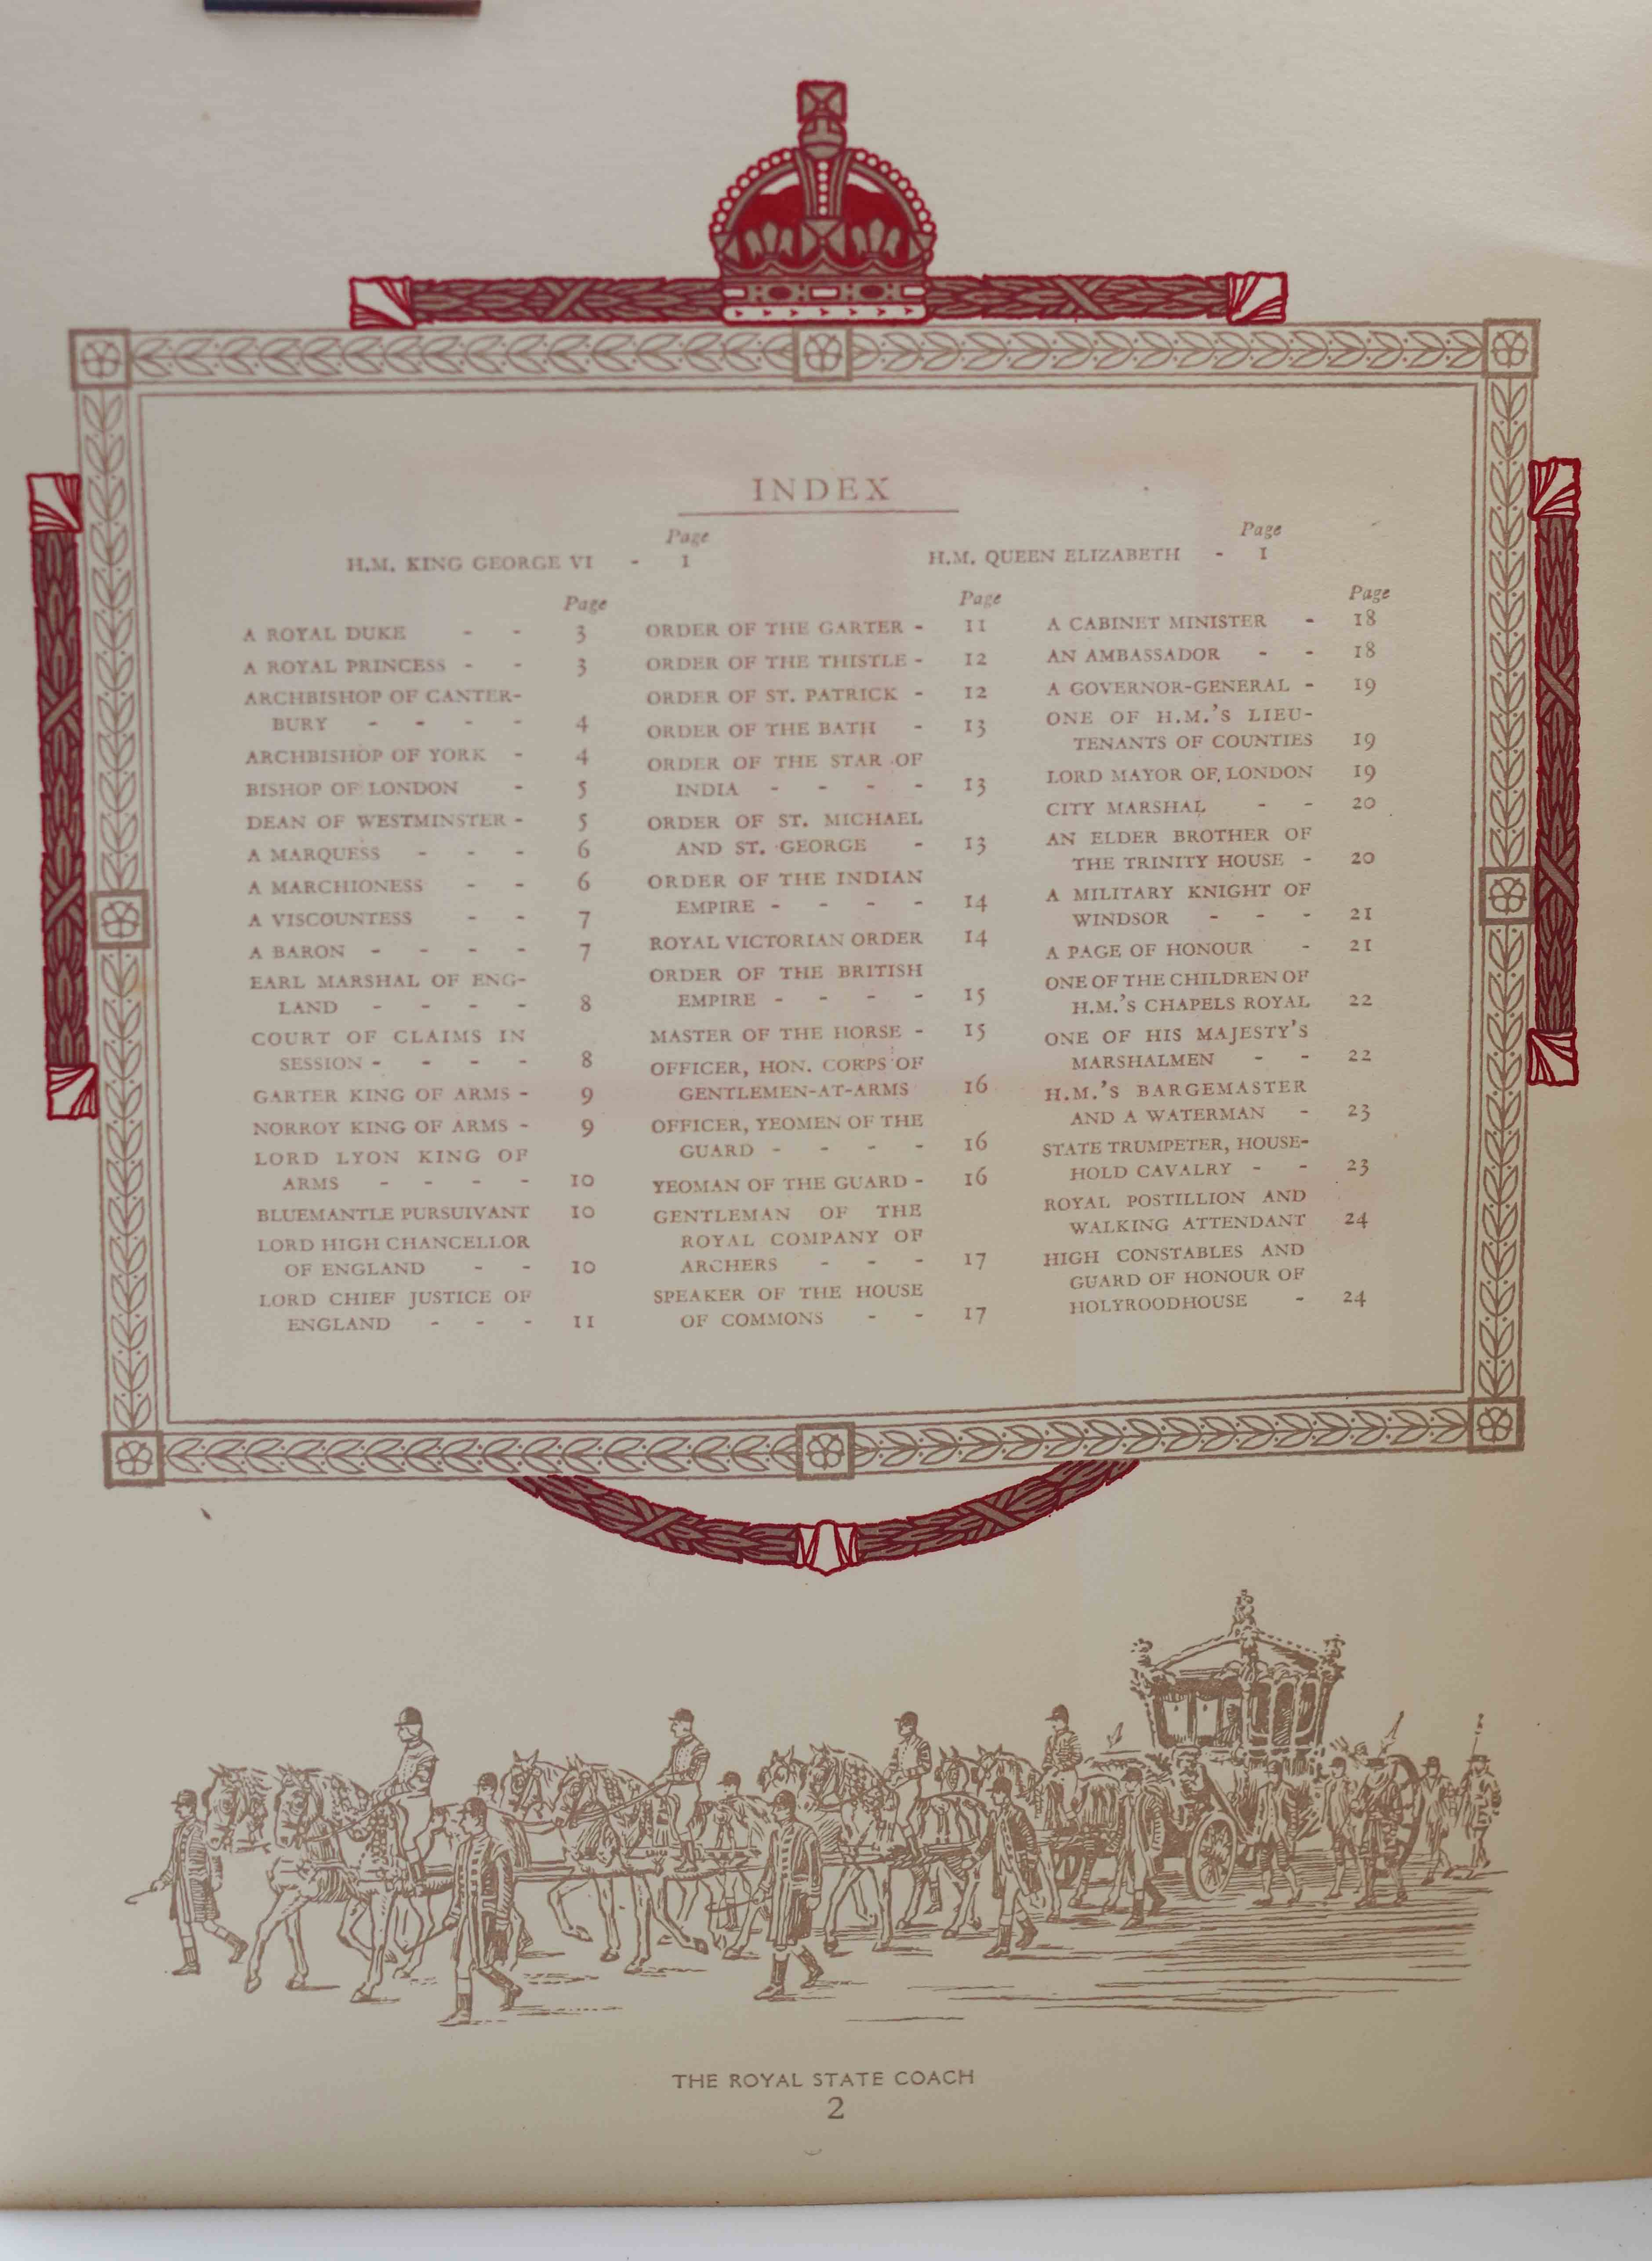 INDEX
Page
H.M. KING GEORGE VI - 1
Page
H.M. QUEEN ELIZABETH - 1
Page
A ROYAL DUKE - - 3
A ROYAL PRINCESS - - 3
ARCHBISHOP OF CANTER-
BURY - - - - 4
ARCHBISHOP OF YORK - 4
BISHOP OF LONDON - 5
DEAN OF WESTMINSTER - 5
A MARQUESS - - - 6
A MARCHIONESS - - 6
A VISCOUNTESS - - 7
A BARON - - - - 7
EARL MARSHAL OF ENG-
LAND - - - - 8
COURT OF CLAIMS IN
SESSION - - - - 8
GARTER KING OF ARMS - 9
NORROY KING OF ARMS - 9
LORD LYON KING OF
ARMS - - - - 10
BLUEMANTLE PURSUIVANT 10
LORD HIGH CHANCELLOR
OF ENGLAND - - 10
LORD CHIEF JUSTICE OF
ENGLAND - - - 11
Page
ORDER OF THE GARTER - 11
ORDER OF THE THISTLE - 12
ORDER OF ST. PATRICK - 12
ORDER OF THE BATH - 13
ORDER OF THE STAR OF
INDIA - - - - 13
ORDER OF ST. MICHAEL
AND ST. GEORGE - 13
ORDER OF THE INDIAN
EMPIRE - - - - 14
ROYAL VICTORIAN ORDER 14
ORDER OF THE BRITISH
EMPIRE - - - - 15
MASTER OF THE HORSE - 15
OFFICER, HON. CORPS OF
GENTLEMEN-AT-ARMS 16
OFFICER, YEOMEN OF THE
GUARD - - - - 16
YEOMAN OF THE GUARD - 16
GENTLEMAN OF THE
ROYAL COMPANY OF
ARCHERS - - - 17
SPEAKER OF THE HOUSE
OF COMMONS - - 17
Page
A CABINET MINISTER - 18
AN AMBASSADOR - - 18
A GOVERNOR-GENERAL - 19
ONE OF H.M.'S LIEU-
TENANTS OF COUNTIES 19
LORD MAYOR OF LONDON 19
CITY MARSHAL - - 20
AN ELDER BROTHER OF
THE TRINITY HOUSE - 20
A MILITARY KNIGHT OF
WINDSOR - - - 21
A PAGE OF HONOUR - 21
ONE OF THE CHILDREN OF
H.M.'S CHAPELS ROYAL 22
ONE OF HIS MAJESTY'S
MARSHALMEN - - 22
H.M.'S BARGEMASTER
AND A WATERMAN - 23
STATE TRUMPETER, HOUSE-
HOLD CAVALRY - - 23
ROYAL POSTILLION AND
WALKING ATTENDANT 24
HIGH CONSTABLES AND
GUARD OF HONOUR OF
HOLYROODHOUSE - 24
THE ROYAL STATE COACH
2